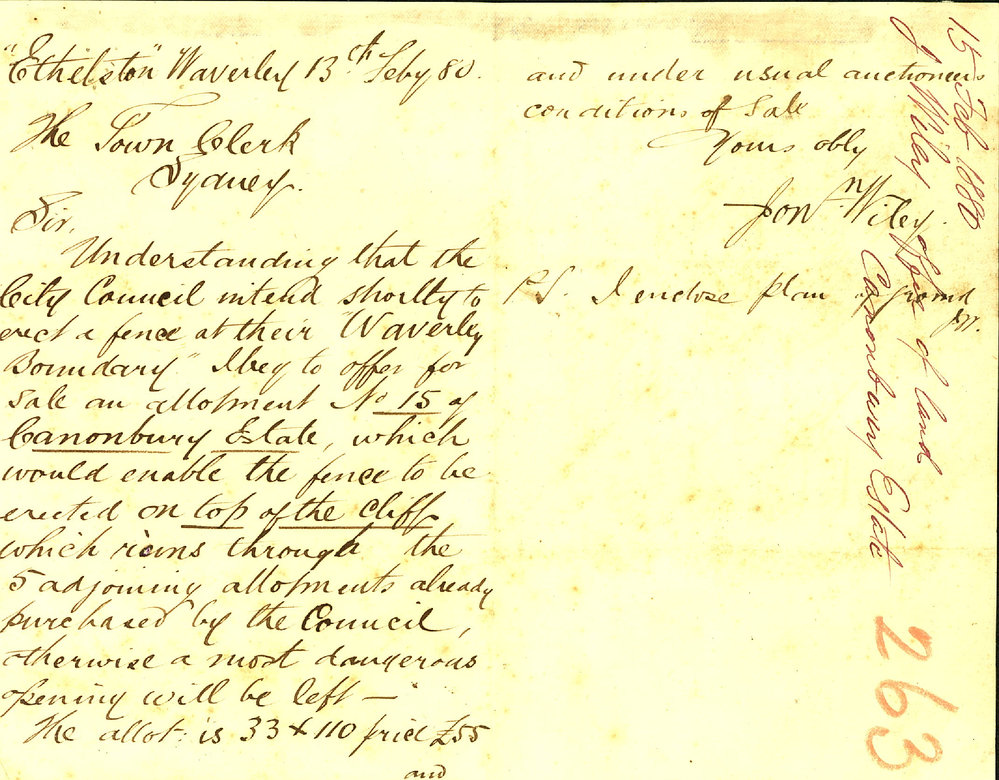 "Ethelston" Waverley 13th Feby 80.
The Town Clerk
Sydney.
Sir,
Understanding that the
City Council intend shortly to
erect a fence at their "Waverley
Boundary" I beg to offer for
sale an allotment No 15 of
Canonbury Estate, which
would enable the fence to be
erected on top of the cliff
which runs through the
5 adjoining allotments already
purchased by the Council,
otherwise a most dangerous
opening will be left —
The allot: is 33 x 110 price £55
and
and under usual auctioneers
conditions of Sale
Yours obly
Jonn Wiley.
PS. I enclose plan of ground
JW.
15 Feb 1880
J Wiley offer of land
Canonbury Estate
263